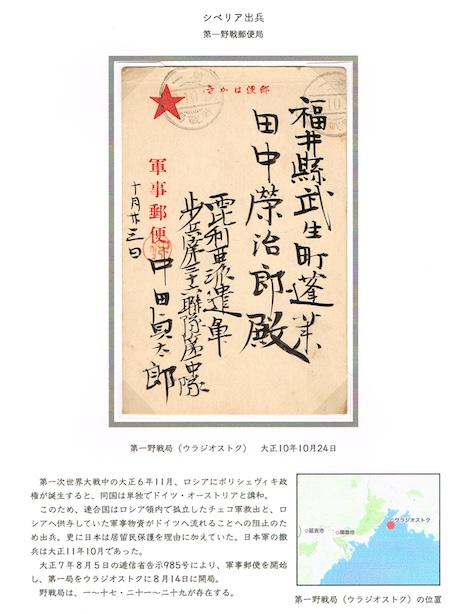 シベリア出兵
第一野戦郵便局
郵便はかき
福井縣武生町蓬莱
田中榮治郎殿
軍事郵便
十月廿三日
西比利亜派遣軍
歩兵第三十六聯隊第 中隊
中田貞太郎
第一野戦局（ウラジオストク）　大正10年10月24日
第一次世界大戦中の大正６年11月、ロシアにボリシェヴィキ政
権が誕生すると、同国は単独でドイツ・オーストリアと講和。
このため、連合国はロシア領内で孤立したチェコ軍救出と、ロ
シアへ供与していた軍事物資がドイツへ流れることへの阻止のた
め出兵。更に日本は居留民保護を理由に加えていた。日本軍の撤
兵は大正11年10月であった。
大正７年８月５日の逓信省告示985号により、軍事郵便を開始
し、第一局をウラジオストクに８月14日に開局。
野戦局は、一〜十七・二十一〜二十九が存在する。
ウラジオストク
延吉市
琿春市
第一野戦局（ウラジオストク）の位置